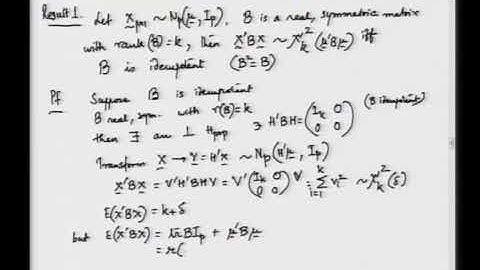 Result 1. Let x p×1 ~ Np(μ, Ip). B is a real, symmetric matrix
with rank(B)=k, then x'Bx ~ χ'²k (μ'Bμ) iff
B is idempotent (B²=B)
Pf Suppose B is idempotent
B real, sym. with r(B)=k
then ∃ an ⊥ Hp×p ∋ H'BH = (Ik 0 0 0) (B idempotent)
Transform X → Y = H'X ~ Np(H'μ, Ip)
X'BX = Y'H'BHY = Y'(Ik 0 0 0) Y = Σ i=1 k Yi² ~ χ'²k(δ)
E(X'BX) = k+δ
but E(X'BX) = tr BIp + μ'Bμ
= r(